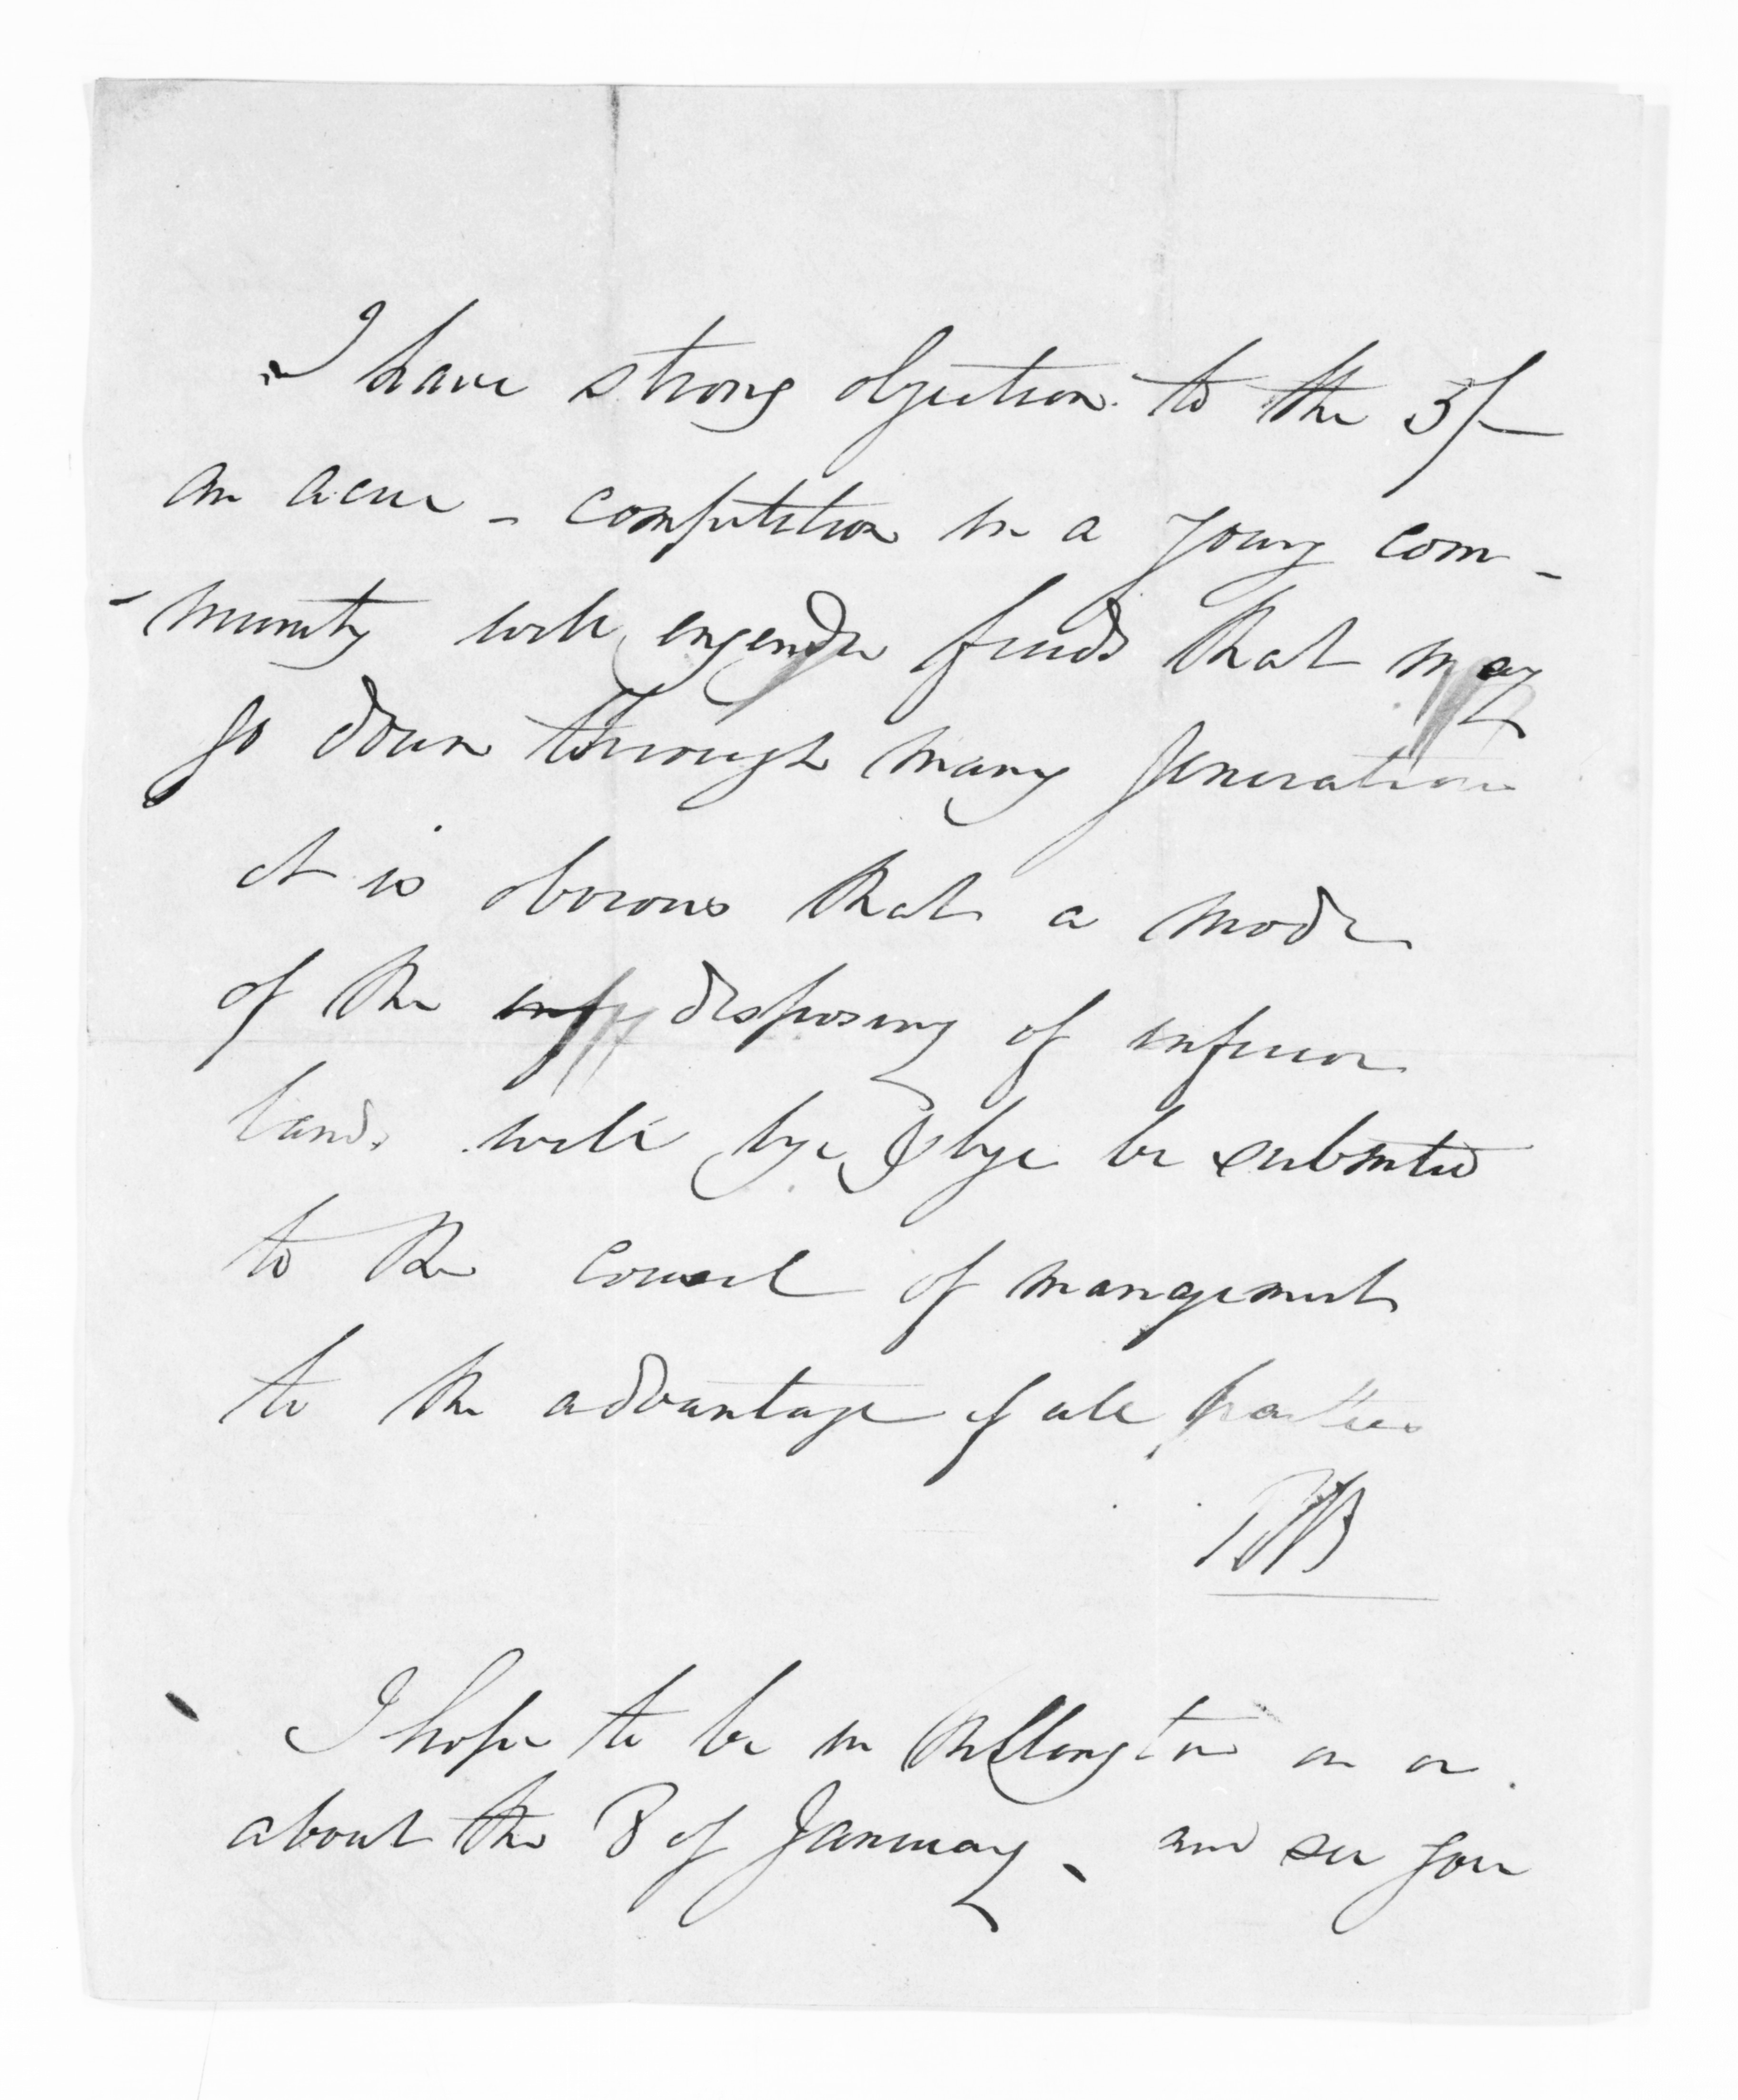 I have strong objection to the 5/-
an acre - competition in a young com-
-munity will engender feuds that may
go down through many generations
it is obvious that a mode
of the disposing of inferior
lands will bye & bye be submitted
to the council of management
to the advantage of all parties
I hope to be in Wellington on or
about the 8 of January - and see you